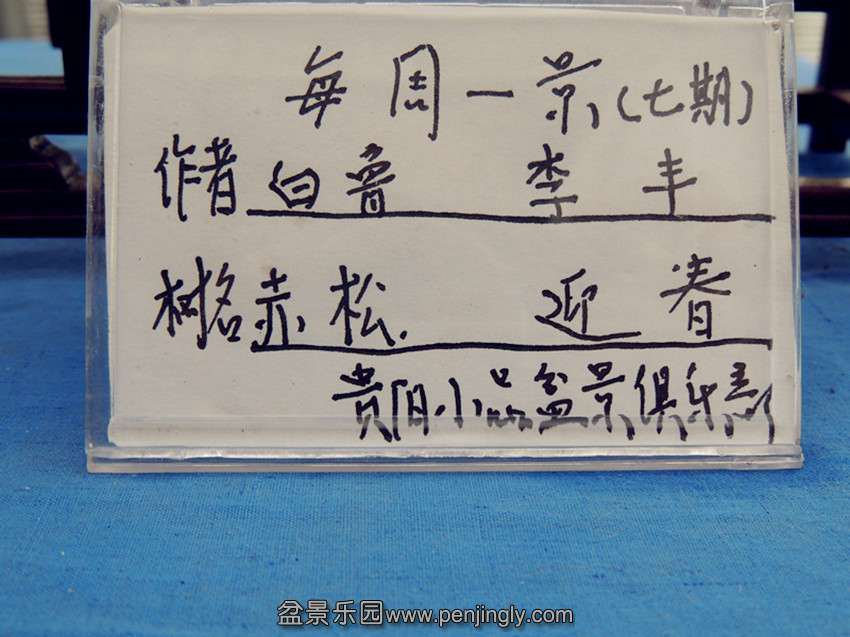 每周一景(七期)
作者 白鲁 李丰
树名 赤松. 迎春
贵阳小品盆景俱乐部
盆景乐园www.penjingly.com